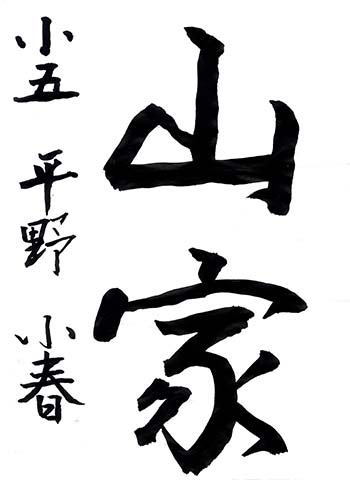 山家
小五 平野 小春